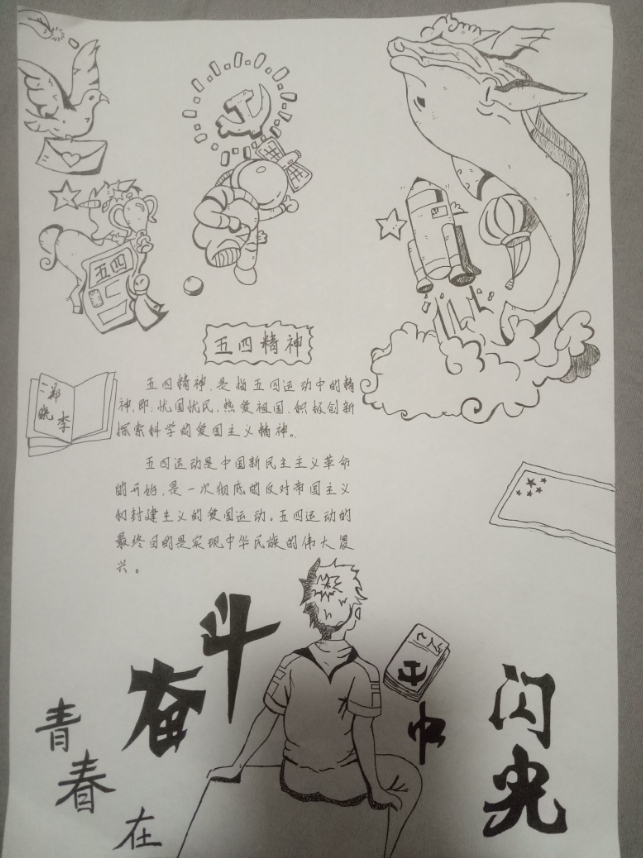 五四
五四精神
五四精神,是指五四运动中的精
神,即:忧国忧民,热爱祖国,积极创新
探索科学的爱国主义精神。
五四运动是中国新民主主义革命
的开始,是一次彻底的反对帝国主义
和封建主义的爱国运动。五四运动的
最终目的是实现中华民族的伟大复
兴。
青春
在
奋斗
中
闪光